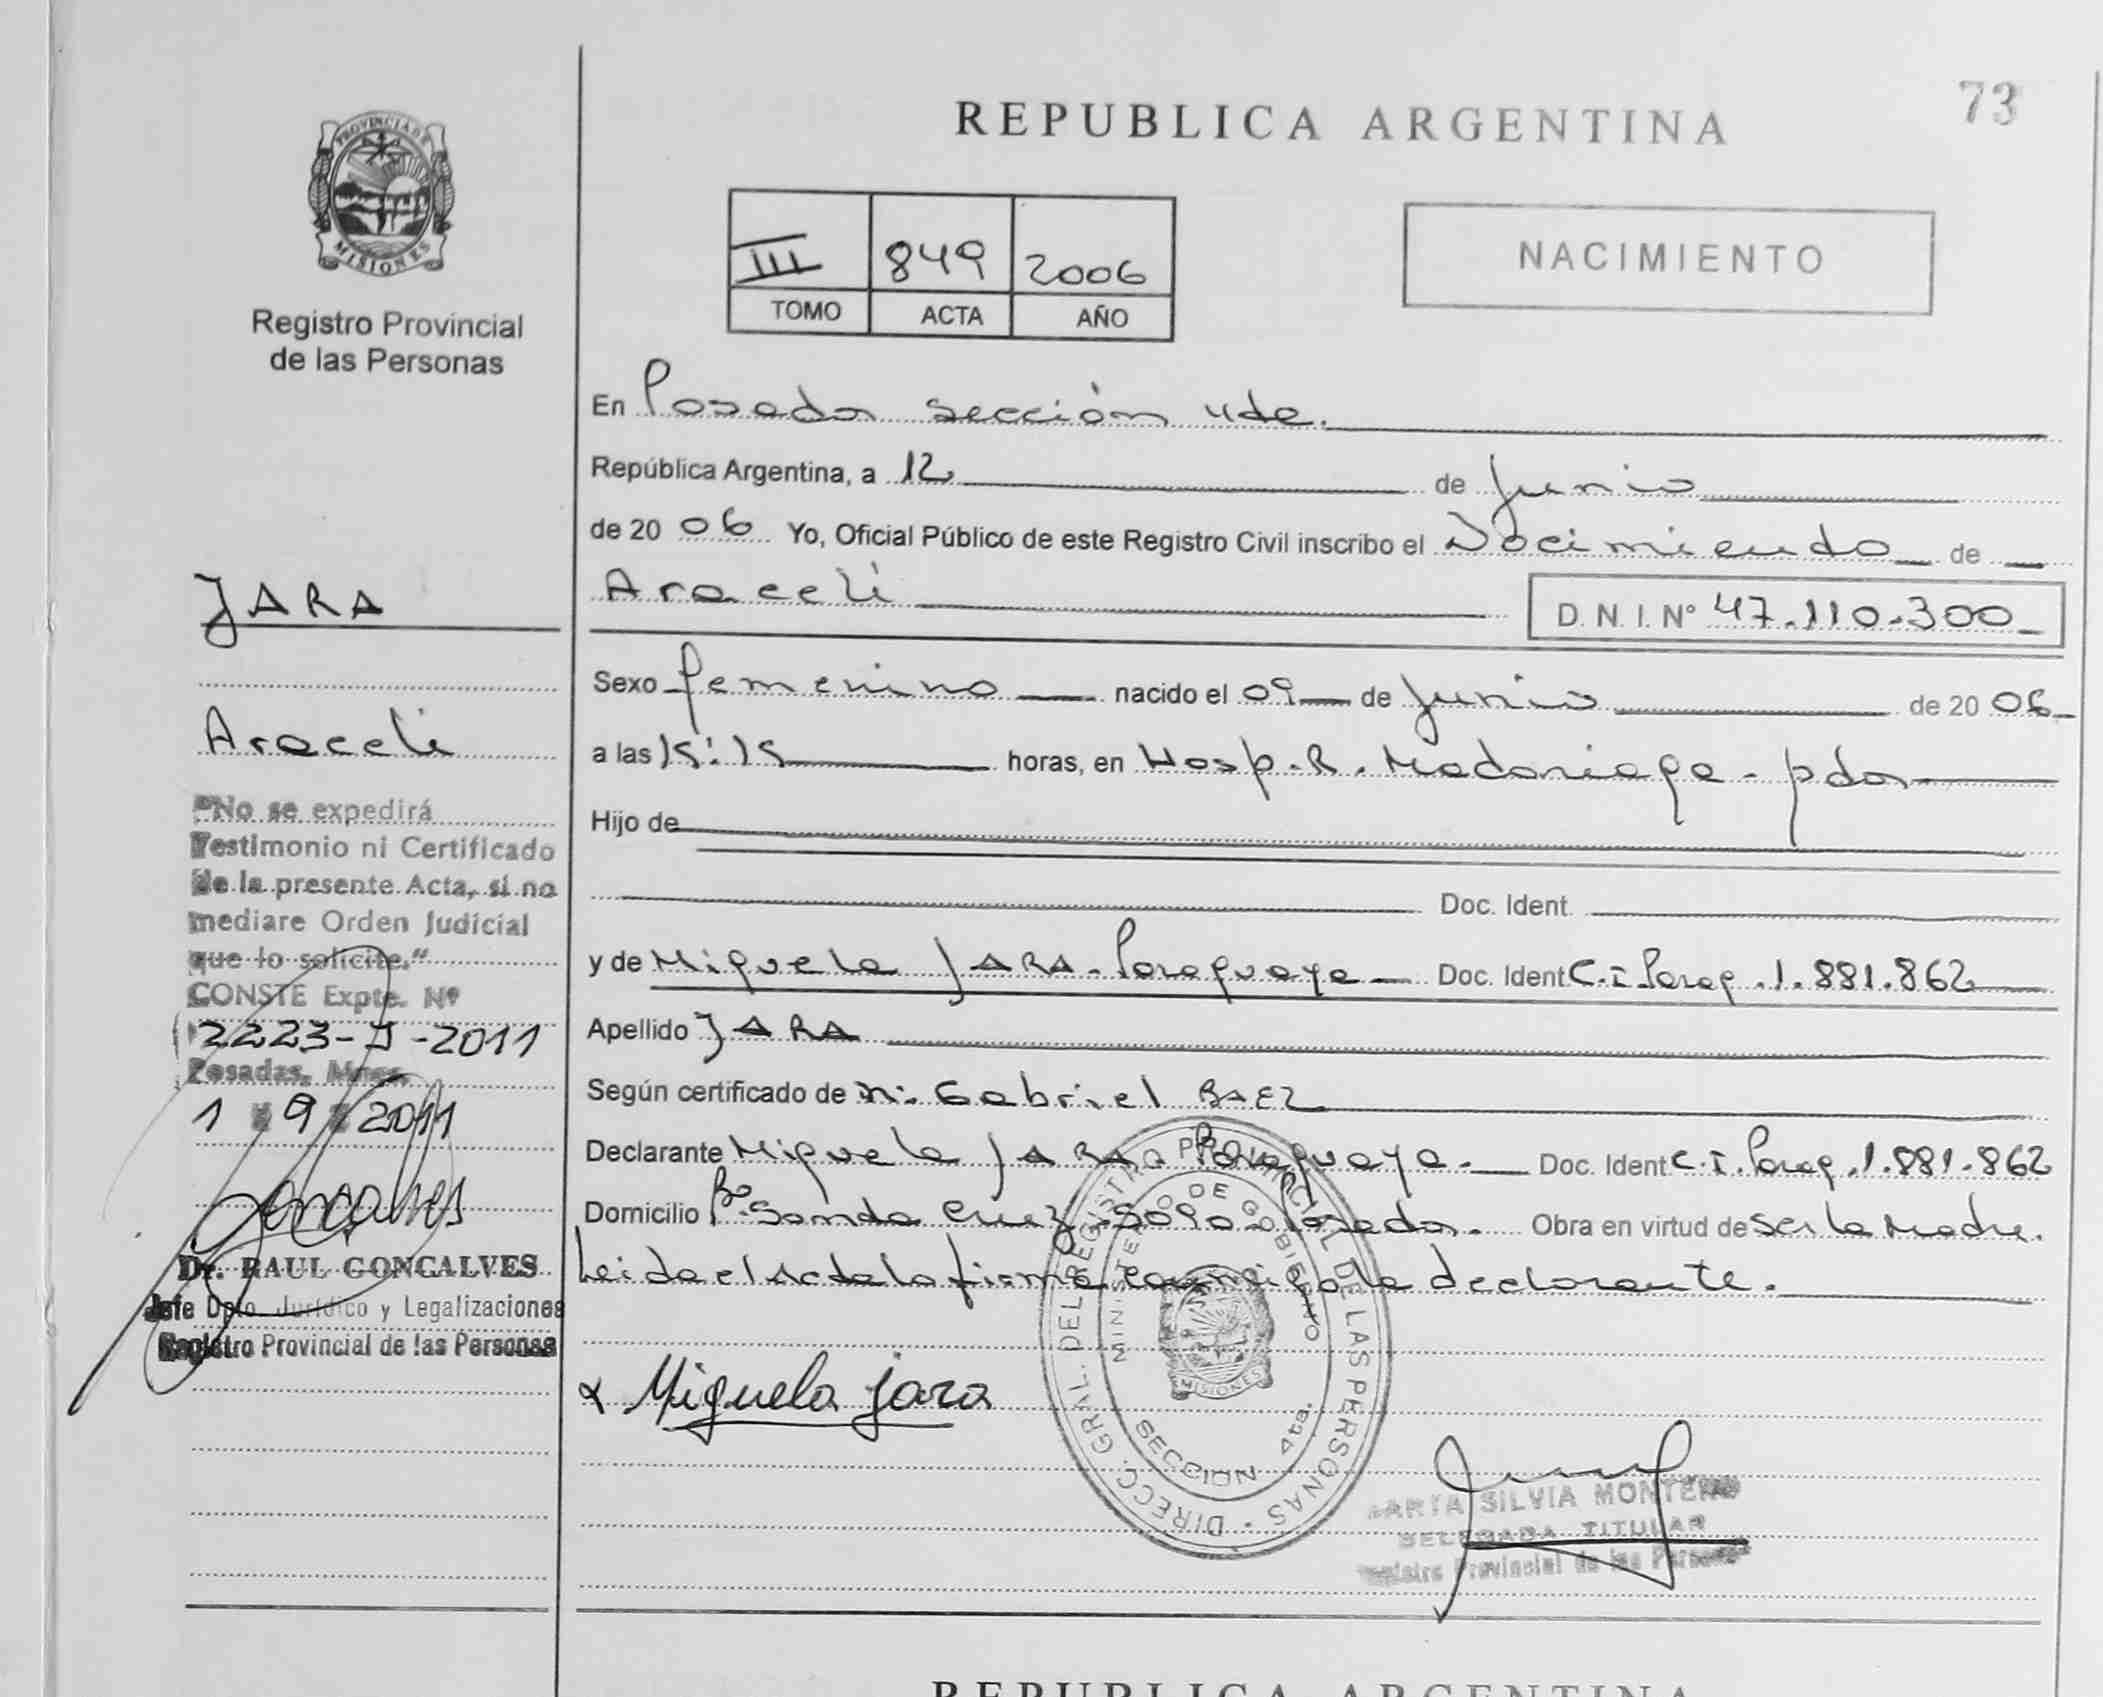 73
REPUBLICA ARGENTINA
PROVINCIA DE
MISIONES
Registro Provincial
de las Personas
III 849 2006
TOMO ACTA AÑO
NACIMIENTO
En Posadas sección 4ta.
República Argentina, a 12 de Junio
de 20 06 Yo, Oficial Público de este Registro Civil inscribo el Nacimiento de
Araceli D. N. I. Nº 47.110.300
Sexo femenino nacido el 09 de Junio de 20 06
a las 15:15 horas, en Hosp. R. Madariaga - pdas
Hijo de
Doc. Ident.
y de Miguela JARA - Paraguaya Doc. Ident C.I Parag. 1.881.862
Apellido JARA
Según certificado de N. Gabriel BAEZ
Declarante Miguela JARA Paraguaya. Doc. Ident C.I. Parag. 1.881.862
Domicilio Bº Santa Cruz Posadas. Obra en virtud de ser la Madre.
Leida el Acta la firma conmigo la declarante.
Miguela jara
DIRECC. GRAL. DEL REGISTRO PROVINCIAL DE LAS PERSONAS
MINISTERIO DE GOBIERNO
MISIONES
SECCION 4ta.
MARTA SILVIA MONTERO
DELEGADA TITULAR
Registro Provincial de las Personas
JARA
Araceli
"No se expedirá
Testimonio ni Certificado
de la presente Acta, si no
mediare Orden Judicial
que lo solicite."
CONSTE Expte. Nº
2223-J-2011
Posadas, Mnes.
1 9 2011
Goncalves
Dr. RAUL GONCALVES
Jefe Dpto. Jurídico y Legalizaciones
Registro Provincial de las Personas
REPUBLICA ARGENTINA